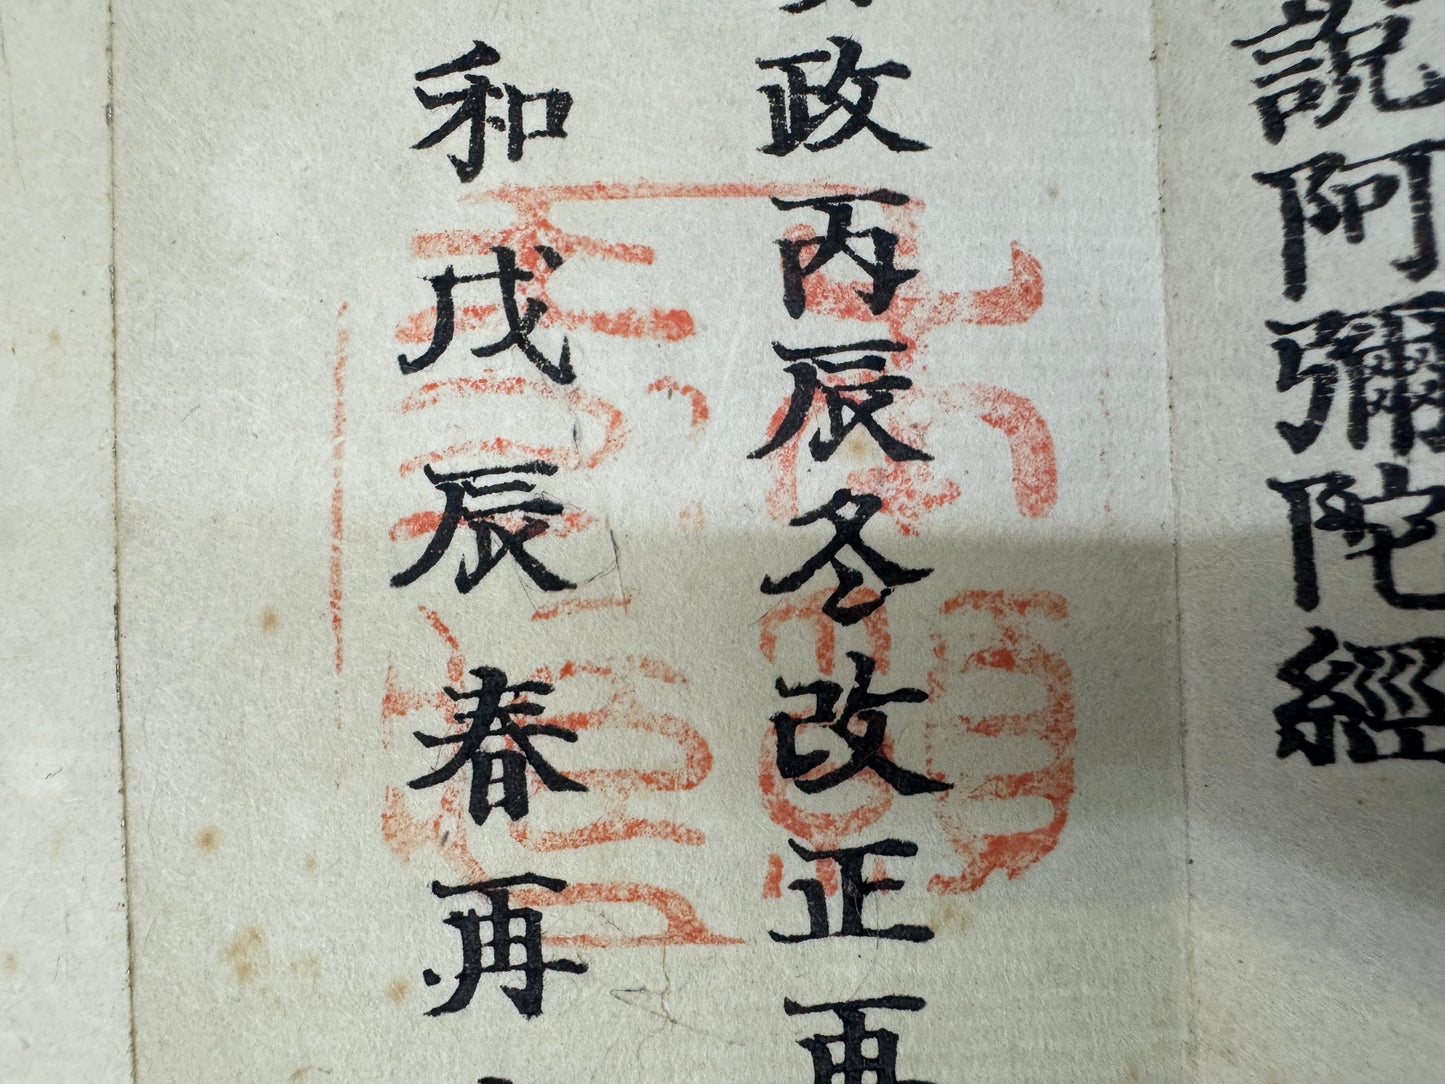 說阿彌陀經
政丙辰冬改正再
和戊辰春再